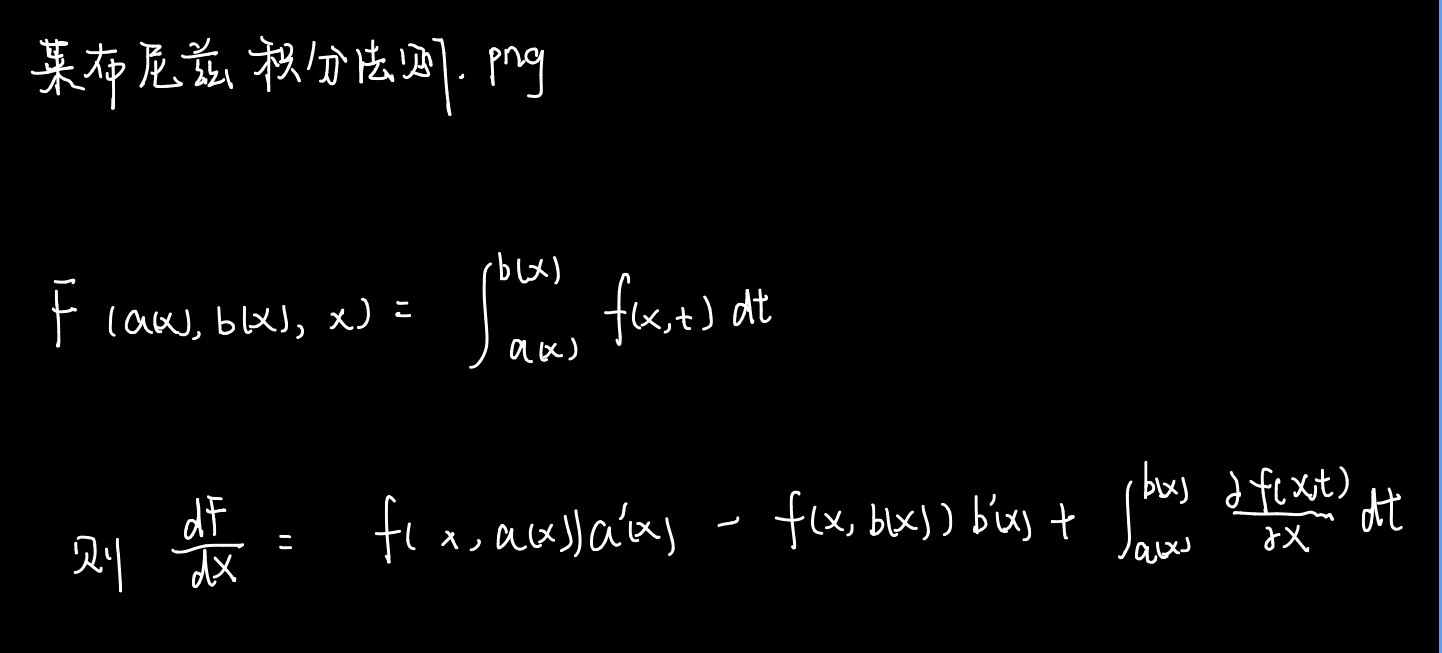 莱布尼兹积分法则.png
F(a(x), b(x), x) = ∫_{a(x)}^{b(x)} f(x,t) dt
则 dF/dx = f(x, a(x))a'(x) - f(x, b(x))b'(x) + ∫_{a(x)}^{b(x)} ∂f(x,t)/∂x dt